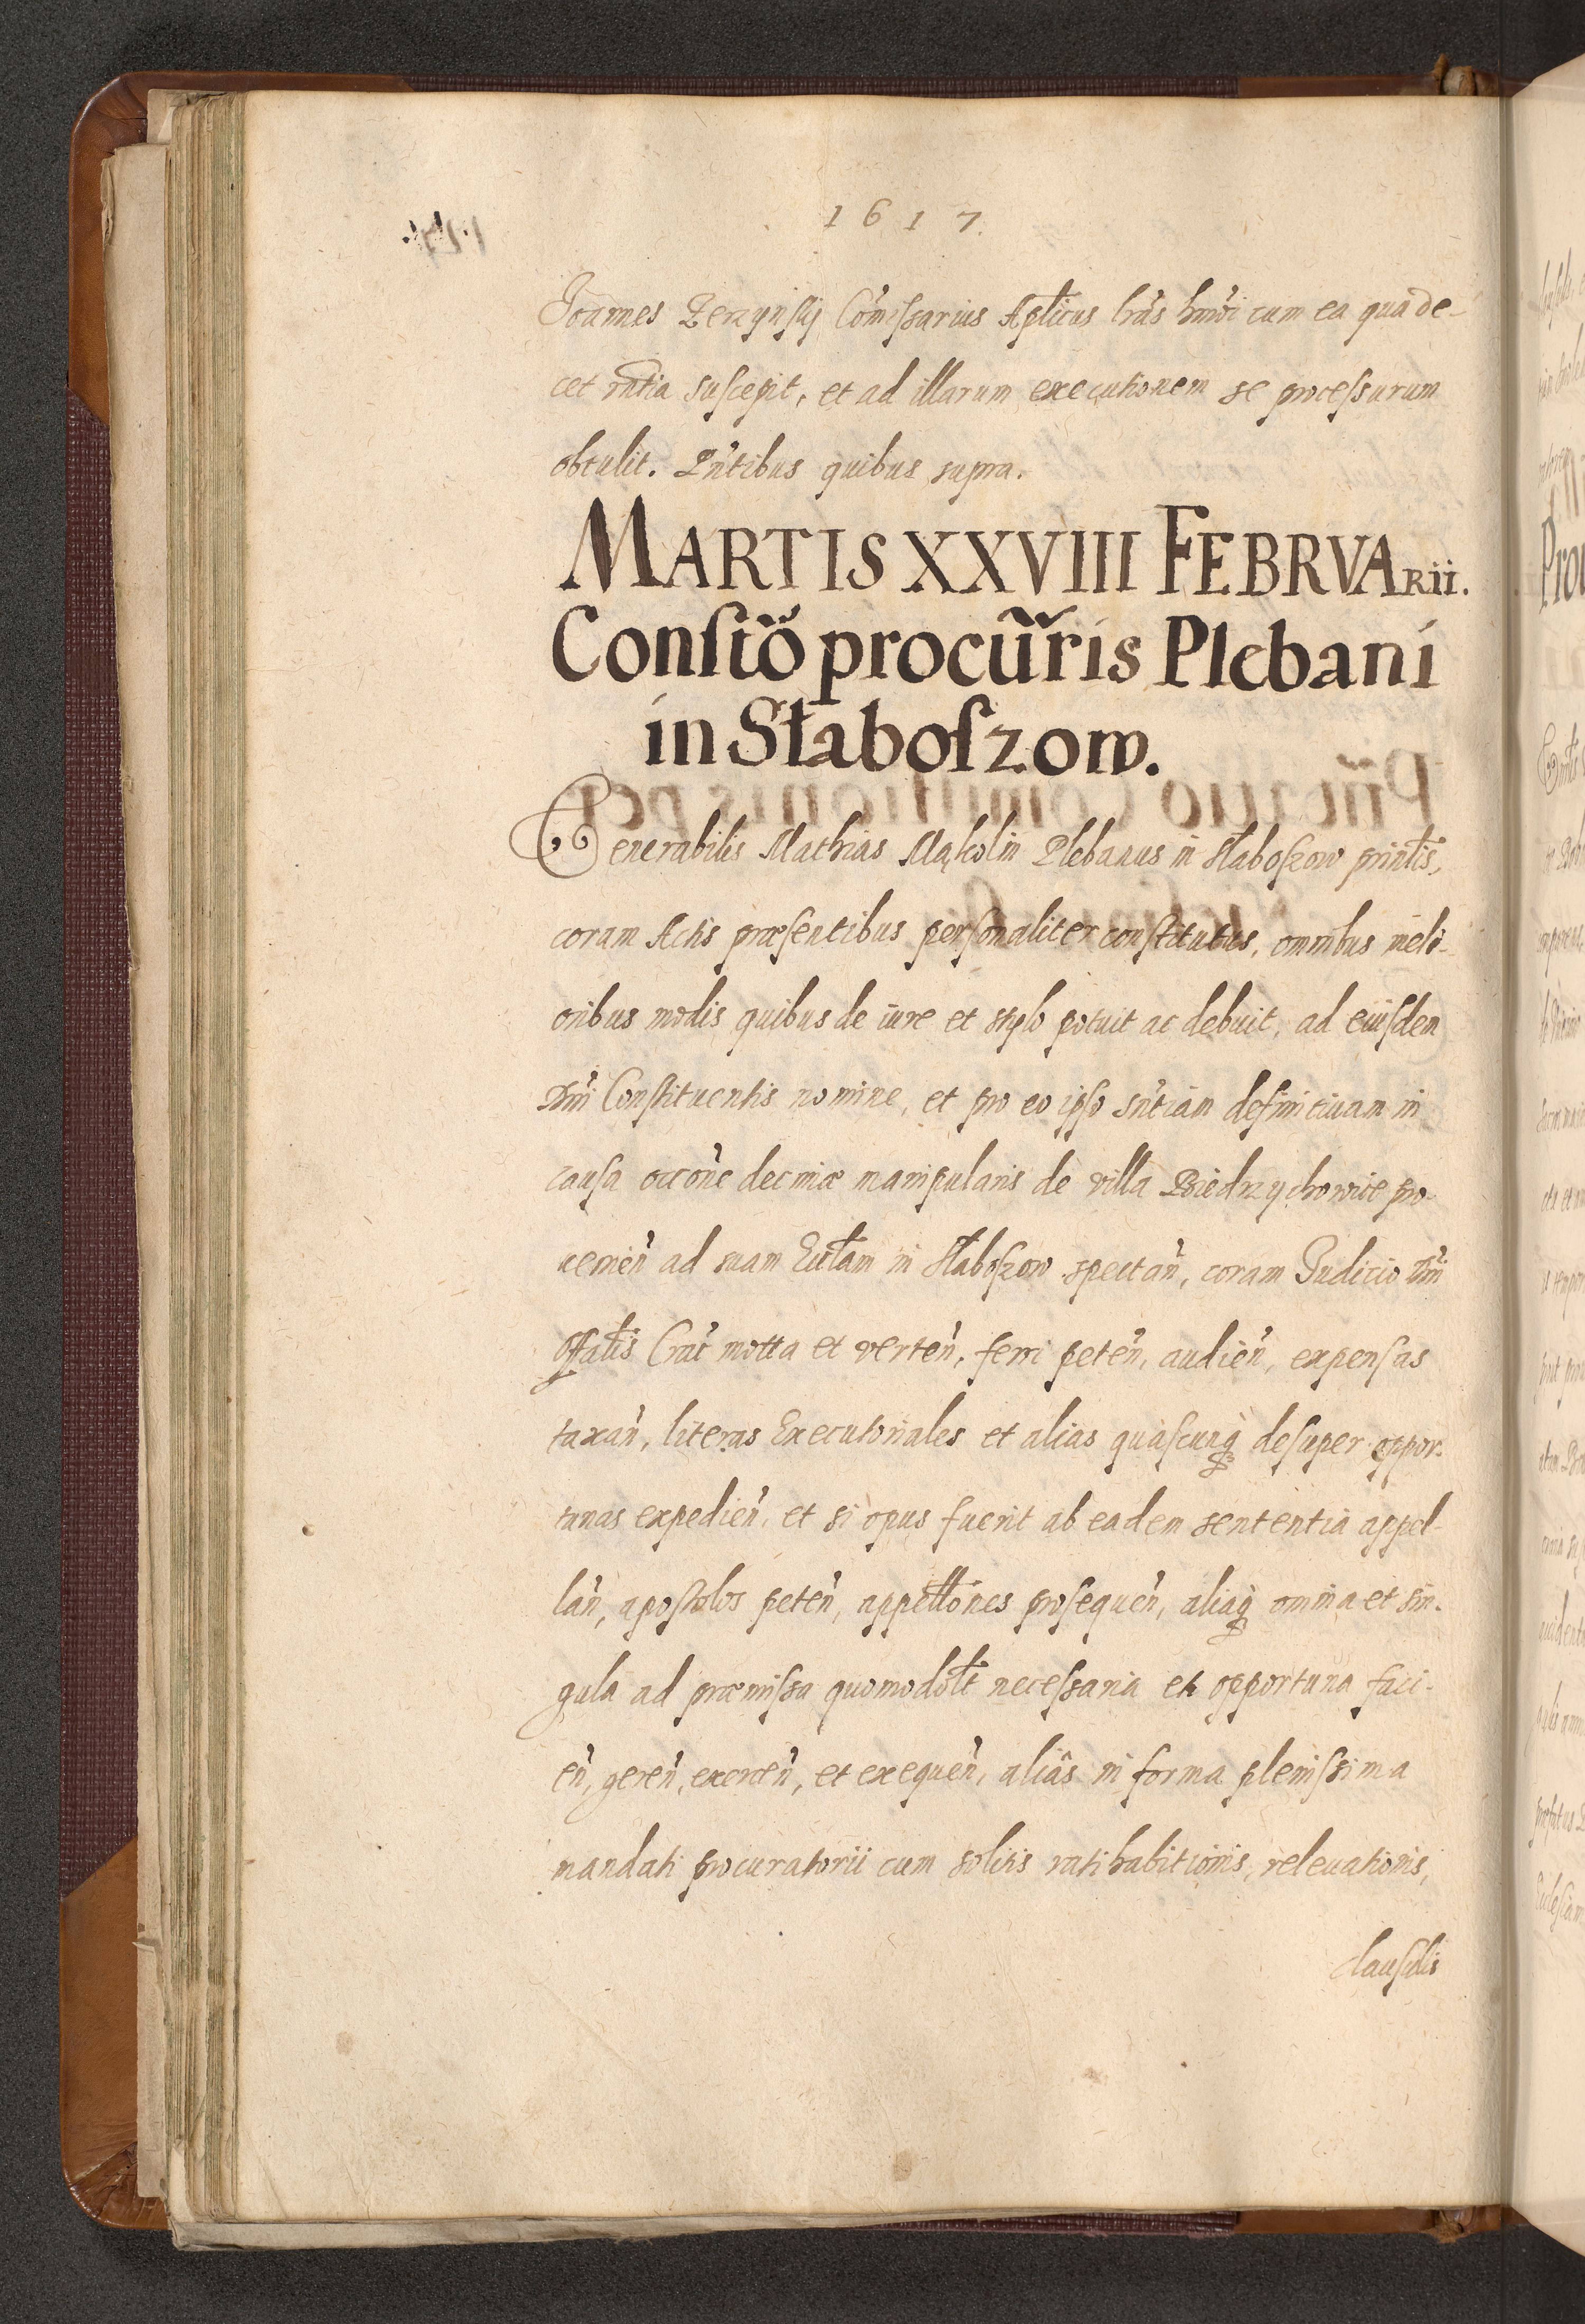 1617.
Joannes Zerzynsky Com̃issarius Aplicus lr̃as hm̃oi cum ea qua de-
cet rn̄tia suscepit, et ad illarum executionem se processurum
obtulit. Pñtibus quibus supra.
MARTIS XXVIII FEBRVARii.
Constiõ procũris Plebani
in Słaboszow.
Venerabilis Mathias Mąkolin Plebanus in Słaboszow prin̄lis,
coram Actis præsentibus personaliter constitutus, omnibus meli-
oribus modis quibus de iure et stylo potuit ac debuit, ad eiusdem
Dñi Constituentis nomine, et pro eo ipso sñtiam definitiuam in
causa occõne decimæ manipularis de villa Biedrzychowice pro-
uenieñ ad suam Ecclam in Słaboszow spectañ, coram Judicio Dñi
Offalis Crac̃ motta et verteñ, ferri peteñ, audieñ, expensas
taxañ, literas Executoriales et alias quascunq̃ desuper oppor-
tunas expedieñ, et si opus fuerit ab eadem sententia appel-
lañ, apostolos peteñ, appellões prosequeñ, aliaq̃ omnia et sin-
gula ad præmissa quomodolt necessaria et opportuna faci-
eñ, gereñ, exerceñ, et exequeñ, aliâs in forma plenissima
mandati procuratorii cum solitis ratihabitionis, releuationis,
clausulis